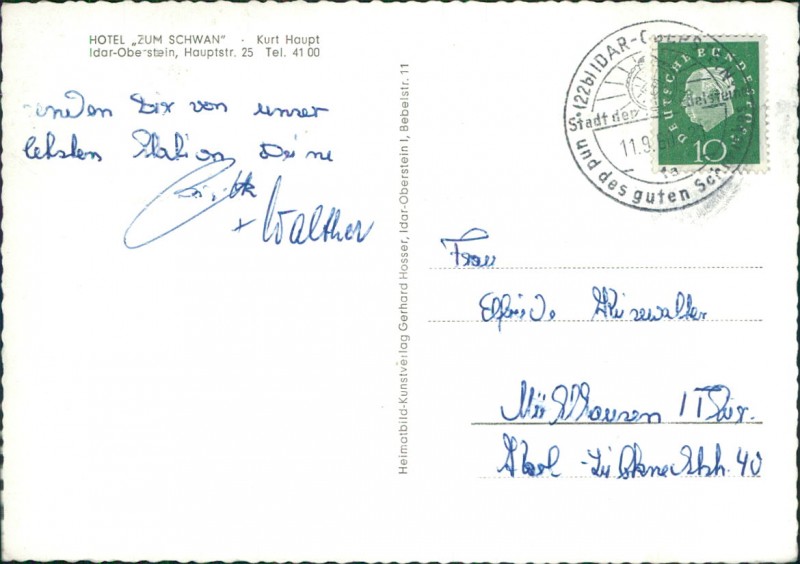 HOTEL „ZUM SCHWAN" - Kurt Haupt
Idar-Oberstein, Hauptstr. 25 Tel. 41 00
von unser
letzten Station Deine
+ Walther
Heimatbild-Kunstverlag Gerhard Hosser, Idar-Oberstein I, Bebelstr. 11
(22b) IDAR-OBERS
Stadt der
delstein
11.9.
und des guten Sch
DEUTSCHE BUNDESPOST
10
Frau
Mühlhausen / Thür.
Karl-Liebknechtstr. 40